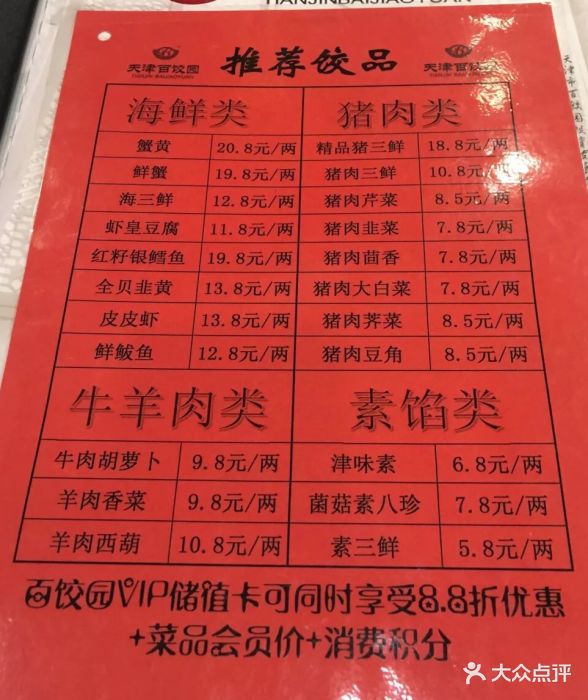 TIANJINBAIJIAOYUAN
天津百饺园
推荐饺品
天津百饺园
海鲜类 猪肉类
蟹黄 20.8元/两 精品猪三鲜 18.8元/两
鲜蟹 19.8元/两 猪肉三鲜 10.8元/两
海三鲜 12.8元/两 猪肉芹菜 8.5元/两
虾皇豆腐 11.8元/两 猪肉韭菜 7.8元/两
红籽银鳕鱼 19.8元/两 猪肉茴香 7.8元/两
全贝韭黄 13.8元/两 猪肉大白菜 7.8元/两
皮皮虾 13.8元/两 猪肉荠菜 8.5元/两
鲜鲅鱼 12.8元/两 猪肉豆角 8.5元/两
牛羊肉类 素馅类
牛肉胡萝卜 9.8元/两 津味素 6.8元/两
羊肉香菜 9.8元/两 菌菇素八珍 7.8元/两
羊肉西葫 10.8元/两 素三鲜 5.8元/两
百饺园VIP储值卡可同时享受8.8折优惠
+菜品会员价+消费积分
天津市百饺园
大众点评